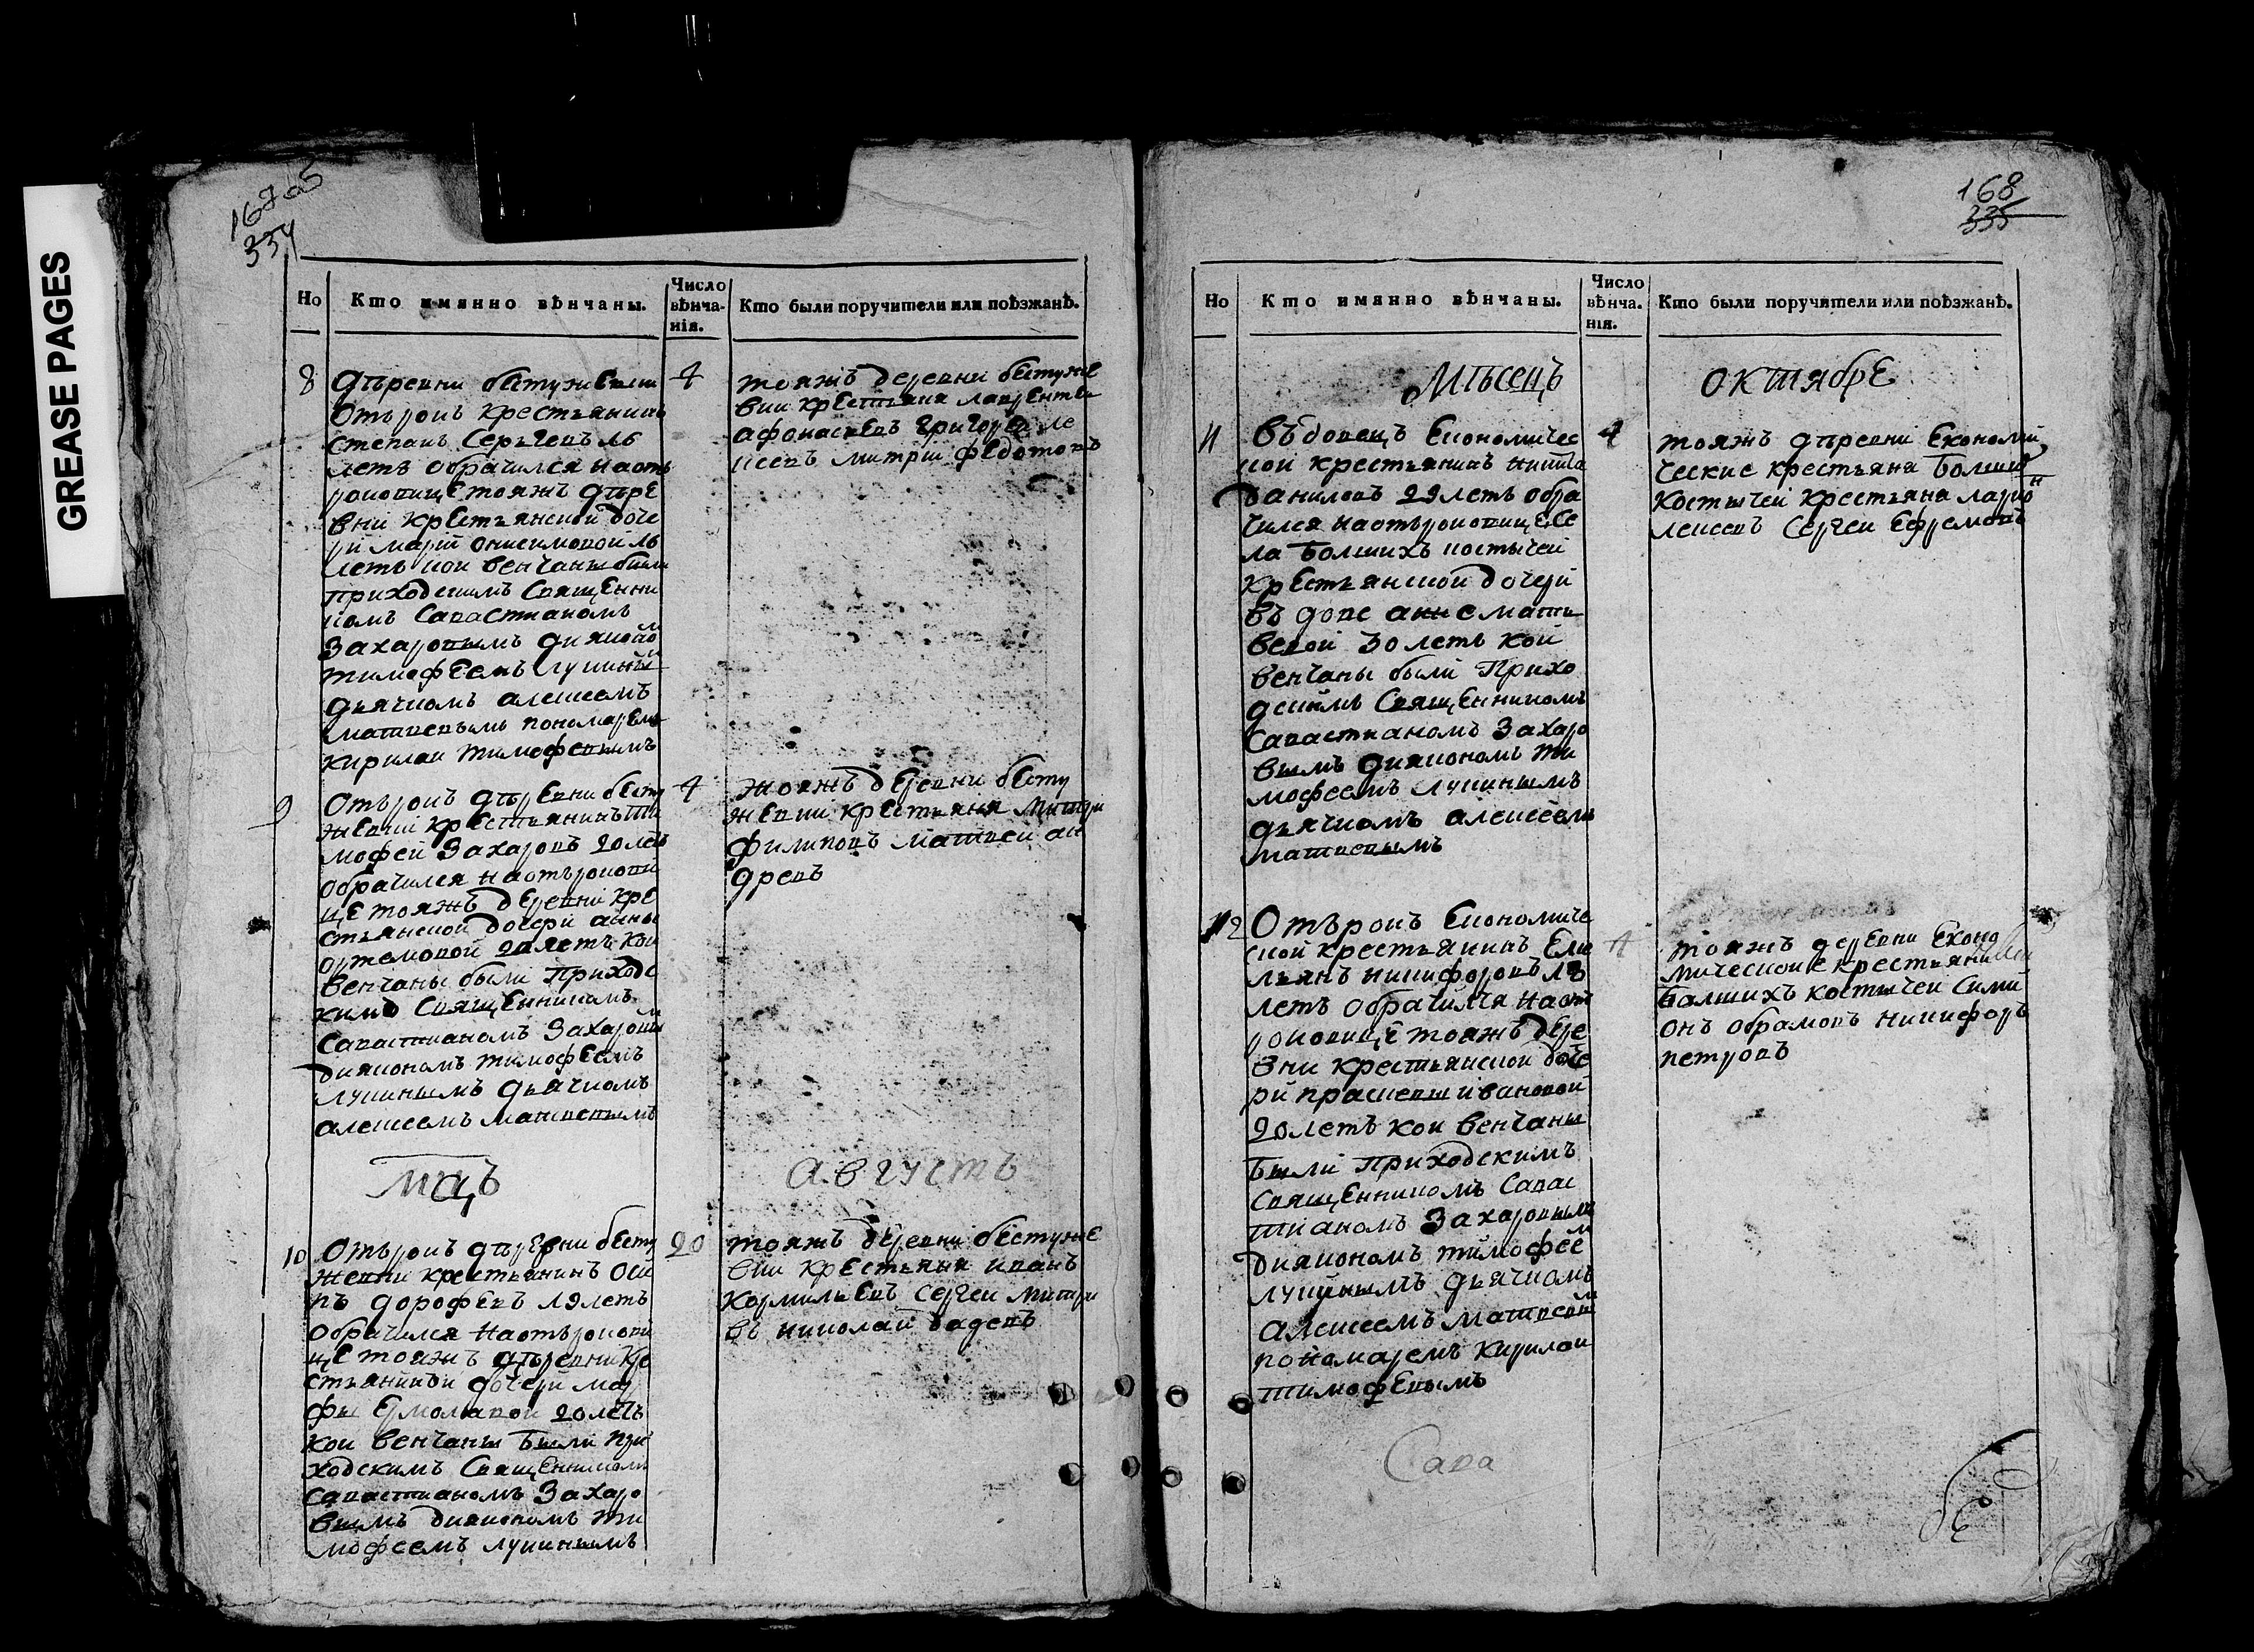 GREASE PAGES
167 об
334
Но
Кто имянно вѣнчаны.
Число вѣнча-
нія.
Кто были поручители или поѣзжанѣ.
8
дѣревни бестужевки
Отърокъ крестьянинъ
Степанъ Сергѣевъ
летъ обрачился наотъ
роковице тояжъ дѣре
вни крестьянской доче
ри марии онисимовой
летъ кои венчаны были
приходскимъ Священни
комъ Савастианомъ
Захаровымъ дияконо
тимофеемъ лукины
дьячкомъ алексеемъ
матвевымъ пономаремъ
кирилаи тимофевымъ
4
тояжъ деревни бестуже
вки крестьяна лаврентеи
афонасьевъ григореи ле
ксевъ митрии федотовъ
9
Отърокъ дѣревни бесту
жевки крестьянинъ ти
мофей Захаровъ 20 летъ
обрачился наотърокови
це тояжъ деревни кре
стьянской дочери анны
ортемовой 20 летъ кои
венчаны были приходс
кимъ Священникомъ
Савастианомъ Захаровы
диякономъ тимофеемъ
лукинымъ дьячкомъ
алексеемъ матвевымъ
4
тояжъ деревни бесту
жевки крестьяна митри
филиповъ матвеи ан
древъ
мцъ
Августъ
10
Отърокъ дѣревни бесту
жевки крестьянинъ оси
пъ дорофевъ 19 летъ
обрачился наотърокови
це тояжъ дѣревни кре
стьянской дочери мар
фы ермолавой 20 летъ
кои венчаны были при
ходскимъ Священникомъ
Савастианомъ Захаро
вымъ диякономъ ти
мофеемъ лукинымъ
20
тояжъ деревни бестуже
вки крестьяна иванъ
Кормильевъ Сергеи митри
въ николаи
168
335
Но
Кто имянно вѣнчаны.
Число вѣнча.
нія.
Кто были поручители или поѣзжанѣ.
Мѣсецъ
октябре
11
Въдовецъ Економичес
кой крестьянинъ никита
даниловъ 29 летъ обра
чился наотъроковице Се
ла Болшихъ костычей
крестьянской дочери
въдове анне матъ
вевой 30 летъ кои
венчаны были Прихо
дскимъ Священникомъ
Савастианомъ Захаро
вымъ дияконом ти
мофеемъ лукинымъ
дьячкомъ алексеемъ
матвевымъ
4
тояжъ дѣревни Економи
ческие крестьяна Болши
Костычей крестьяна ларио
лексевъ Сергеи Ефремовъ
12
Отърокъ Економиче
ской крестьянинъ Еме
льянъ никифоровъ
летъ обрачился наот
роковице тояжъ дере
вни крестьянской доче
ри прасковьи ивановой
20 летъ кои венчаны
были Приходскимъ
Священникомъ Савас
тианомъ Захаровымъ
дияконом тимофее
лукинымъ дьячкомъ
Алексеемъ матвевы
пономаремъ Кирилаи
тимофевымъ
4
тояжъ деревни Еконо
мическое крестьяни
Балшихъ костычеи Сими
онъ обрамовъ никифоръ
петровъ
Сава